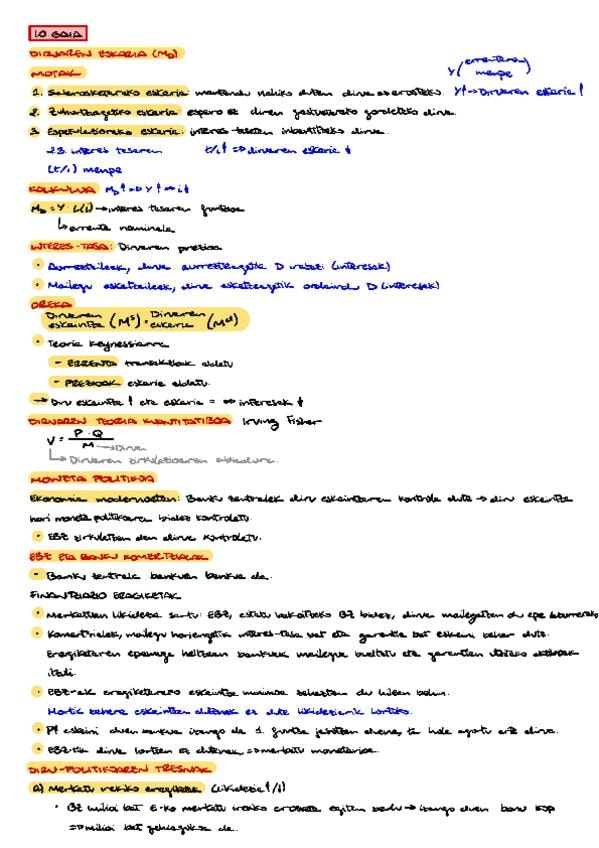 10 GAIA
DIRUAREN ESKARIA (MD)
MOTAK
Y (errentaren menpe)
1. Salerosketarako eskaria mantendu nahiko duten dirua aserateko. Y↑→Diruaren eskaria↑
2. Zuhurtzagatiko eskaria espero ez diren gastuetarako gordetako dirua.
3. Espekulatiorako eskaria: interes-tasetan inbertitzeko dirua.
interes tasaren ↑/i↑ => diruaren eskaria ↓
menpe
KALKULUA MD↑=>Y↑=>i↓
MD = Y·L(i)→interes tasaren funtzioa
↳errenta nominala
INTERES-TASA: Diruaren prezioa
• Aurreztaileek, dirua aurrezteagatik D irabazi (interesak)
• Mailegu eskatzaileek, dirua eskatzeagatik ordaindu D (interesak)
OREKA
Diruaren eskaintza (Ms) = Diruaren eskaria (Md)
• Teoria Keynesiarra
- ERRENTA transakzioak aldatu
- PREZIOAK eskaria aldatu.
→ Diru eskaintza ↑ eta eskaria = => interesak ↓
DIRUAREN TEORIA KUANTITATIBOA Irving Fisher
V = P·Q / M →Dirua
↳ Diruaren zirkulazioaren abiadura.
MONETA POLITIKA
Ekonomia modernoetan: Banku zentralek diru eskaintzaren kontrola dute → diru eskaintza
hori moneta politikaren bidez kontrolatu.
• EBZ zirkulatzen den dirua kontrolatu.
EBZ ETA BANKU KOMERTZIALAK
- Banku zentrala bankuen bankua da.
FINANTZIAZIO ERAGIKETAK
• Merkatuan likidezia sartu: EBZ, estatu bakoitzeko BZ bidez, dirua mailegatzen du epe laburrerako
• Komertzialek, mailegu horiengatik interes-tasa bat eta garantia bat eskaini behar dute.
Eragiketaren epemuga heltzean bankuek mailegua bueltatu eta garantian utzitako aktiboak
itzuli.
• EBZ-ak eragiketarako eskaintza minimoa zehazten du lehen behin.
Hortik behera eskaintzen dutenak ez dute likideziarik lortuko.
• P↑ eskaini duen bankua izango da 1. funtsa jasotzen duena, ta hala agortu arte dirua.
• EBZtik dirua lortzen ez dutenak => merkatu monetarioa.
DIRU-POLITIKAREN TRESNAK
a) Merkatu irekiko eragiketak (likidezia↑/↓)
• BZ milioi bat €-ko merkatu irekiko erosketa egiten badu → izango duen banku
=> milioi bat gehiagokoa da.